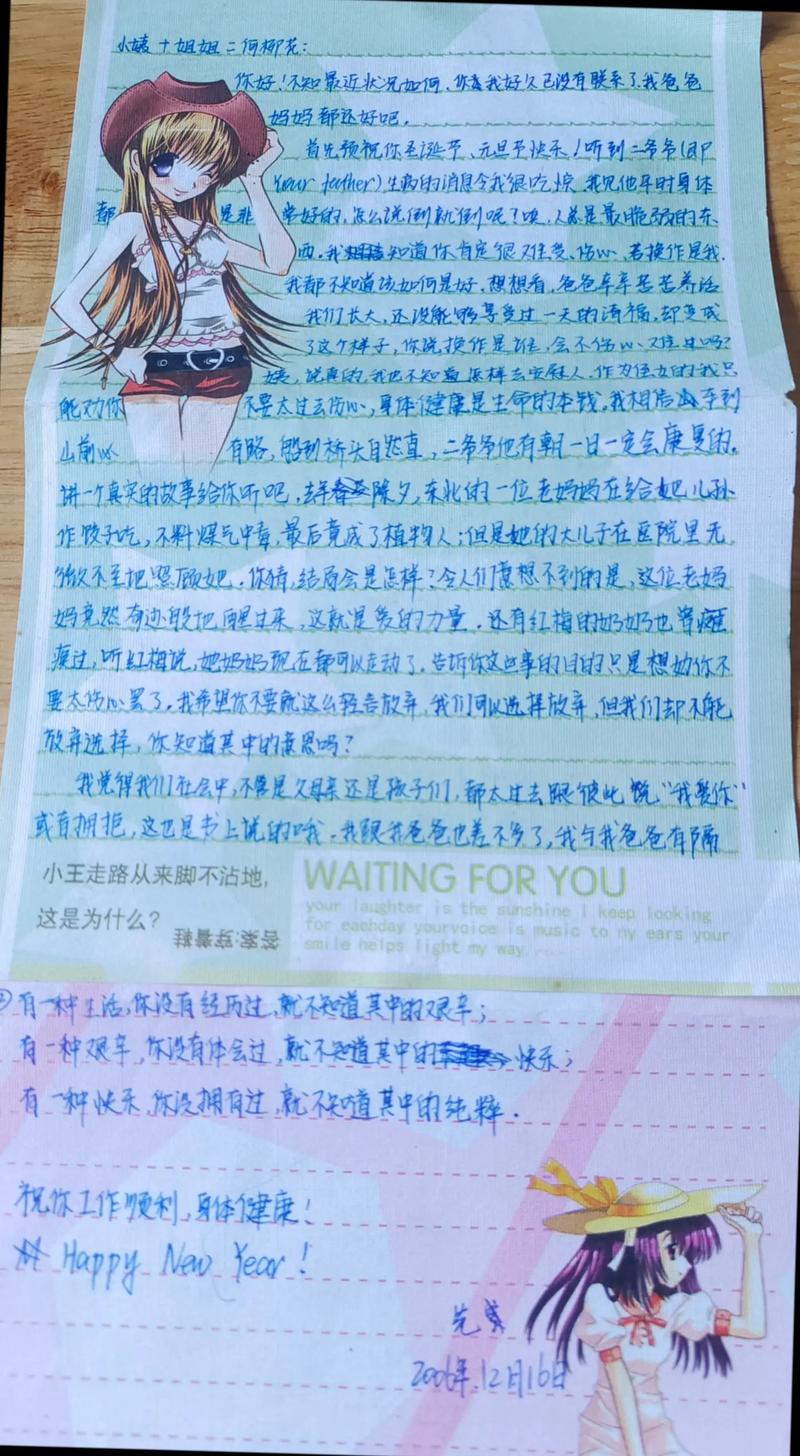 小姨+姐姐=何柳花：
你好！不知最近状况如何，你我好久已没有联系了，我爸爸
妈妈都还好吧。
首先预祝你圣诞节、元旦节快乐！听到二爷爷(即
Your father)生病的消息令我很吃惊，我见他平时身体
都是非常好的，怎么说倒就倒呢？唉，人总是最脆弱的东
西。我知道你肯定很难受、伤心，若换作是我，
我都不知道该如何是好，想想看，爸爸辛辛苦苦养活
我们长大，还没能够享受过一天的清福，却变成
了这个样子，你说换作是谁，会不伤心、难过吗？
姨，说真的，我也不知道怎样去安慰人，作为侄女的我只
能劝你不要太过去伤心，身体健康是生命的本钱，我相信车到
山前必有路，船到桥头自然直，二爷爷他有朝一日一定会康复的。
讲一个真实的故事给你听吧，去年除夕，东北的一位老妈妈在给她儿孙
作饺子吃，不料煤气中毒，最后竟成了植物人；但是她的大儿子在医院里无
微不至地照顾她，你猜，结局会是怎样？令人们意想不到的是，这位老妈
妈竟然奇迹般地醒过来，这就是爱的力量。还有红梅的奶奶也瘫
痪过，听红梅说，她奶奶现在都可以走动了。告诉你这些事的目的只是想劝你不
要太伤心罢了。我希望你不要就这么轻言放弃，我们可以选择放弃，但我们却不能
放弃选择，你知道其中的意思吗？
我觉得我们社会中，不管是父母亲还是孩子们，都太过去跟彼此说“我爱你”
或有拥抱，这也是书上说的哦。我跟我爸爸也差不多了，我与我爸爸有隔
小王走路从来脚不沾地，
这是为什么？
答案:穿着鞋
WAITING FOR YOU
your laughter is the sunshine I keep looking
for eachday yourvoice is music to ny ears your
smile helps light my way.
②有一种生活，你没有经历过，就不知道其中的艰辛；
有一种艰辛，你没有体会过，就不知道其中的快乐；
有一种快乐，你没拥有过，就不知道其中的纯粹.
祝你工作顺利，身体健康！
Happy New Year！
2006年12月16日